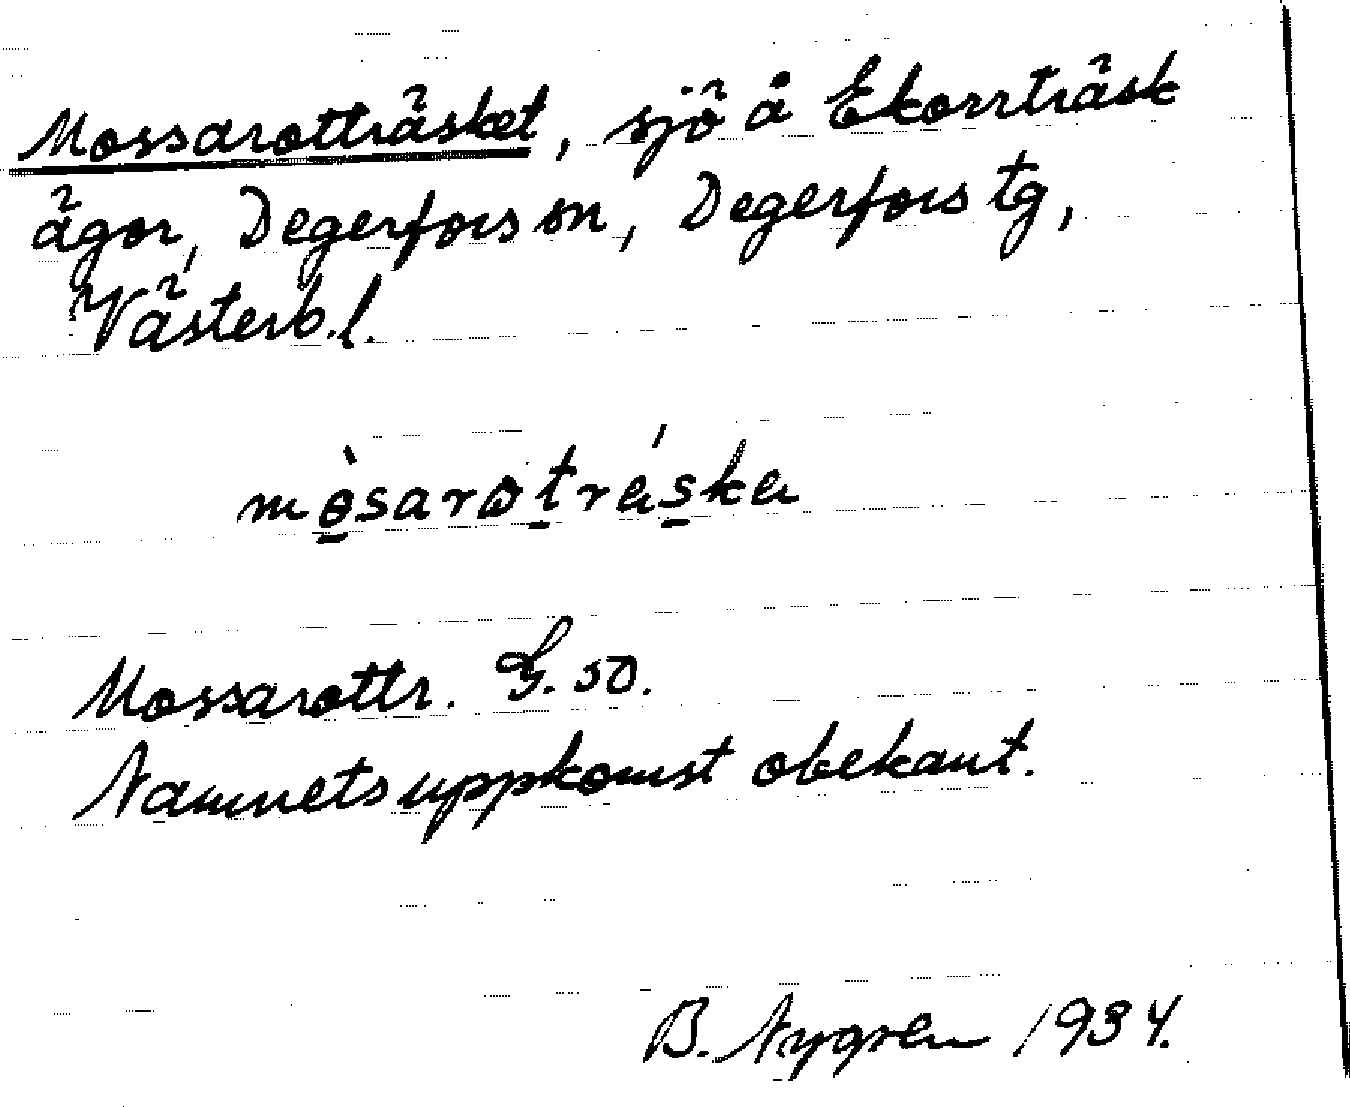 Mossarotträsket, sjö å Ekorrträsk
ägor, Degerfors sn, Degerfors tg,
Västerb. l.
mòsarotráska
Mossarottr. G. 50.
Namnets uppkomst obekant.
B. Nygren 1934.